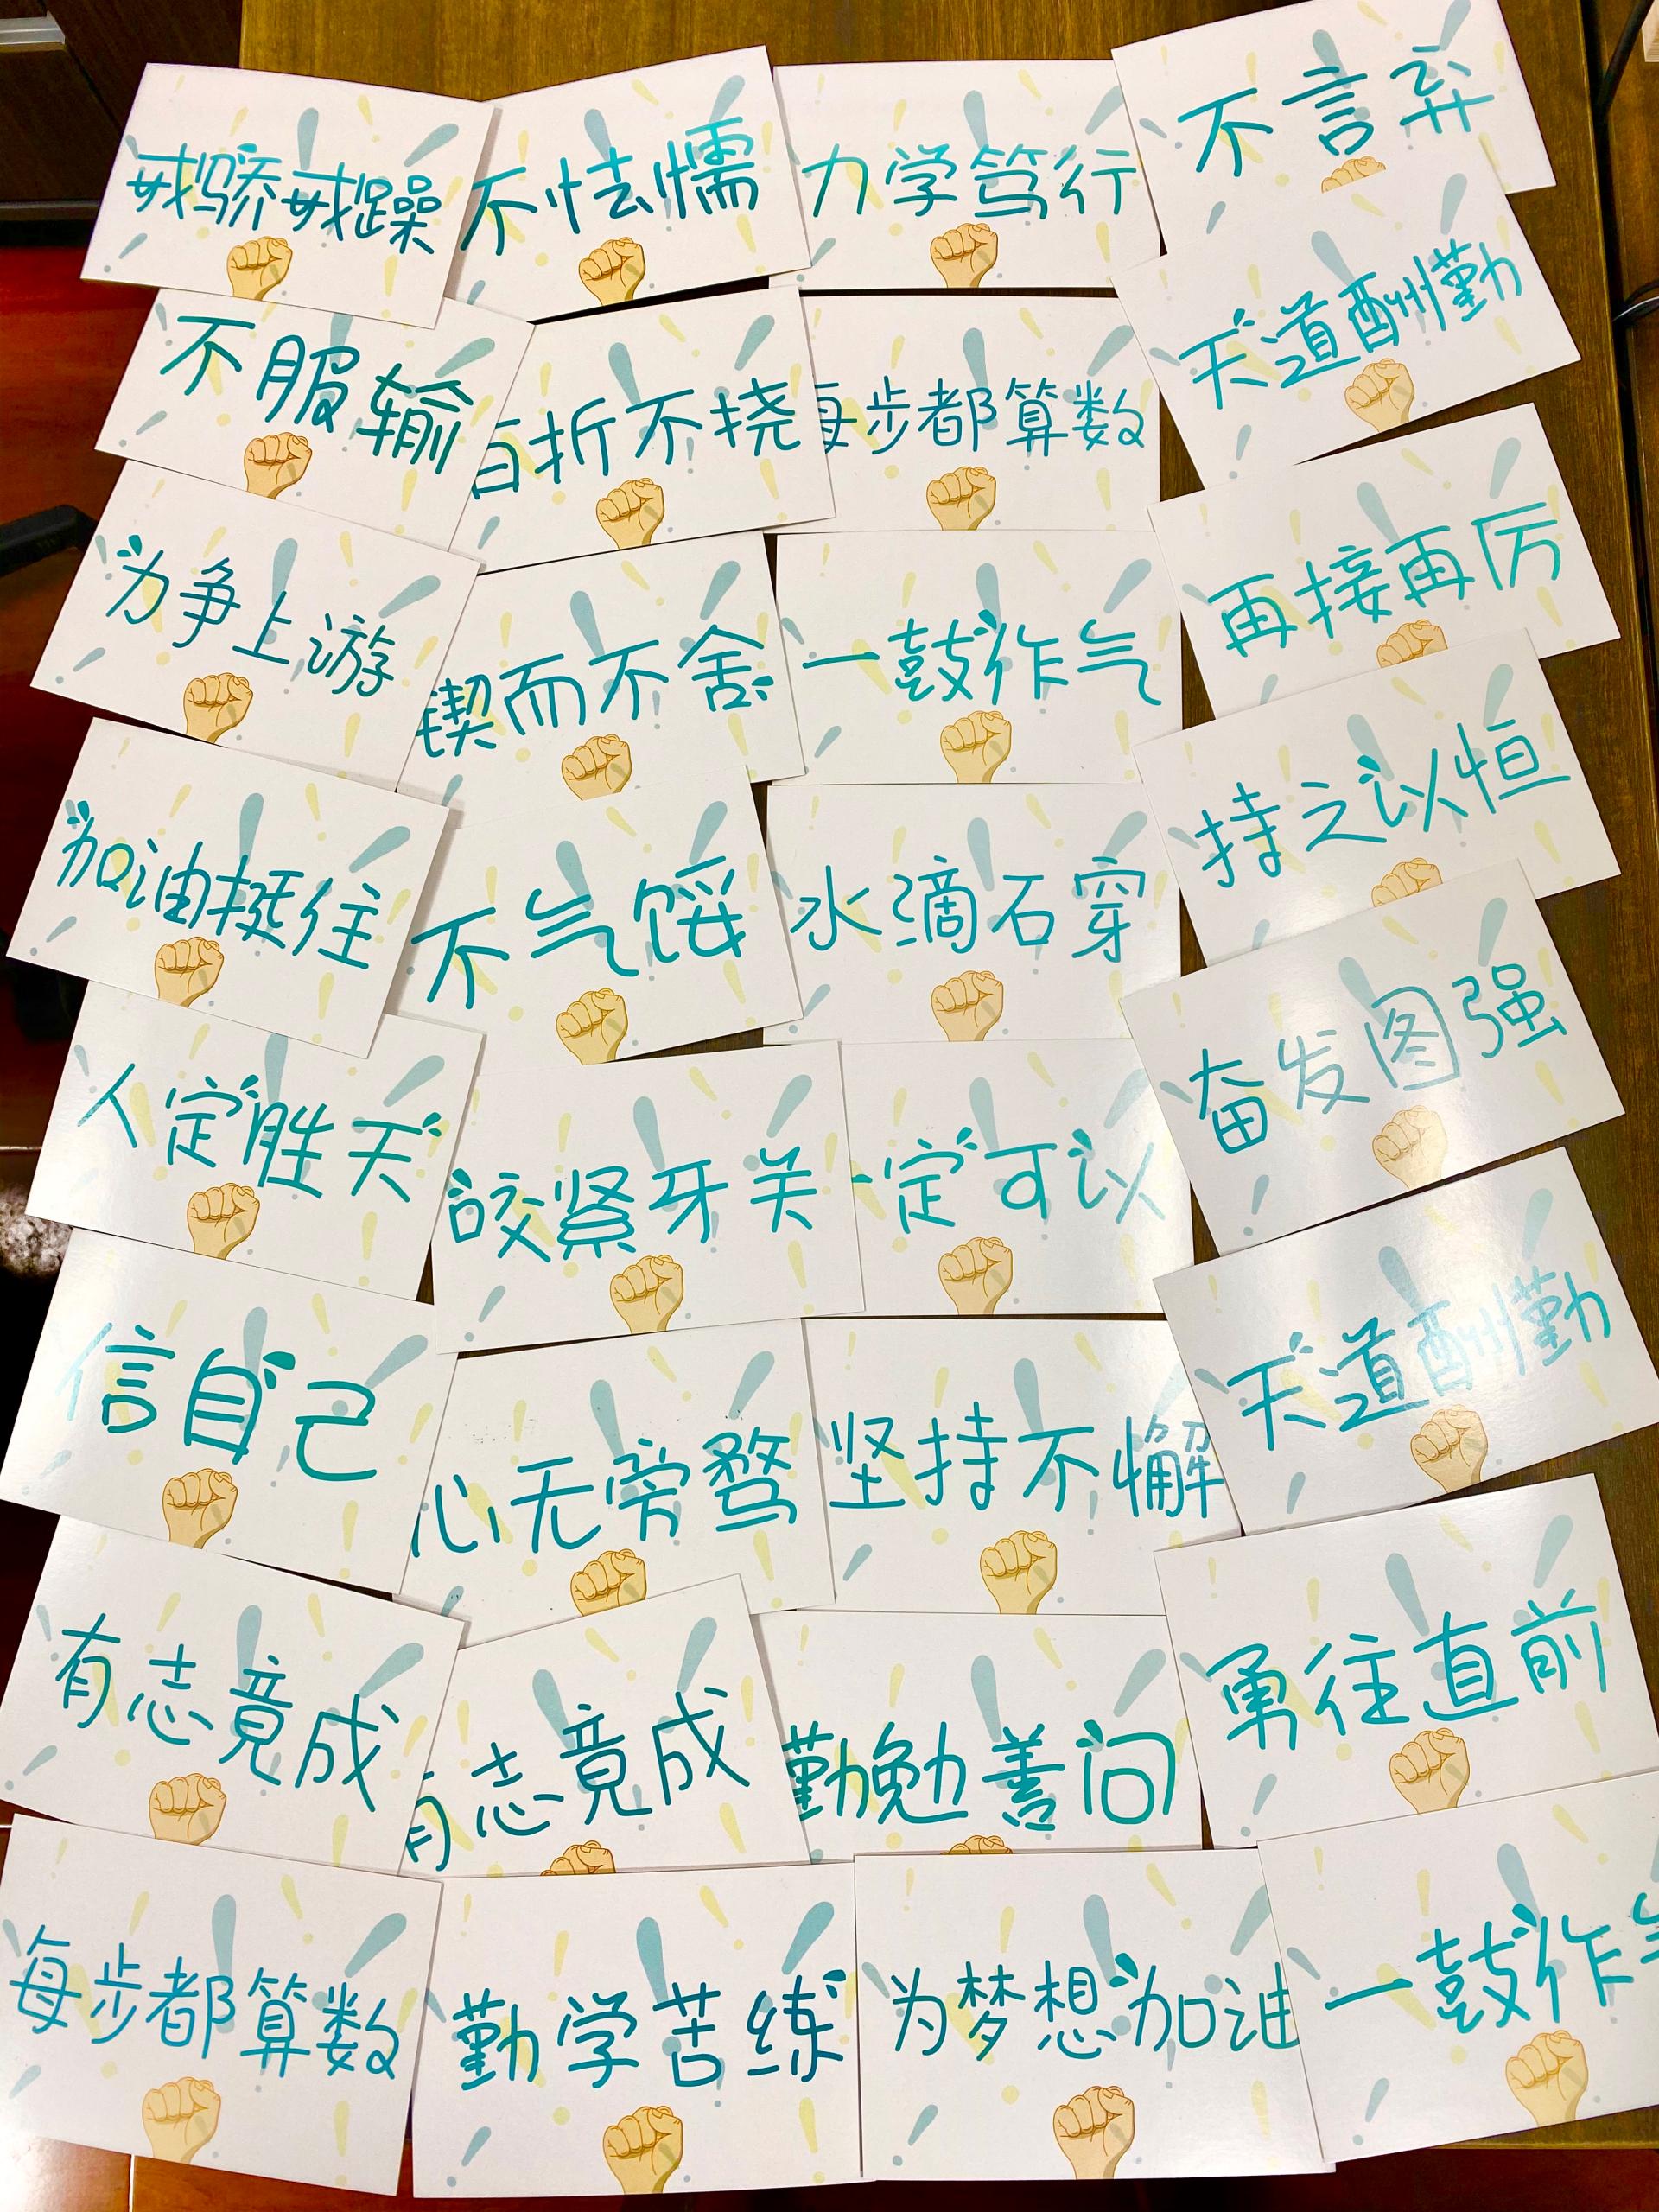 戒骄戒躁
不怯懦
力学笃行
不言弃
不服输
百折不挠
每步都算数
天道酬勤
为争上游
锲而不舍
一鼓作气
再接再厉
加油挺住
不气馁
水滴石穿
持之以恒
人定胜天
咬紧牙关
一定可以
奋发图强
信自己
心无旁骛
坚持不懈
天道酬勤
有志竟成
有志竟成
勤勉善问
勇往直前
每步都算数
勤学苦练
为梦想加油
一鼓作气